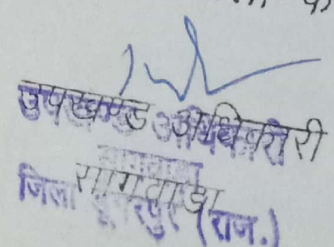 उपखण्ड अधिकारी
सागवाडा
जिला डूंगरपुर (राज.)